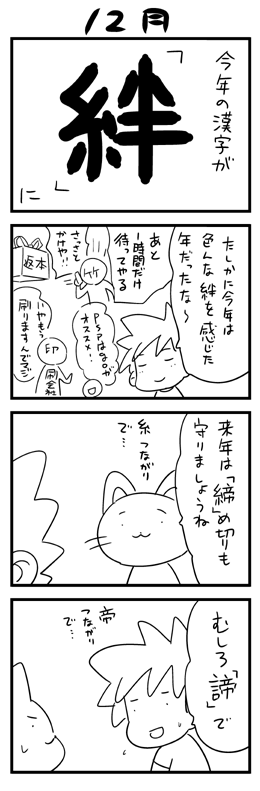 12月
今年の漢字が
「
絆
」
に
たしかに今年は
色んな絆を感じた
年だったな〜
あと
1時間だけ
待ってやる
竹
さっさと
かけや!!
返本
PSPはgoが
オススメ!
印
刷会社
いやもう
刷りますんでマジ
来年は「締」め切りも
守りましょうね
糸つながり
で…
むしろ「諦」で
帝
つながり
で…